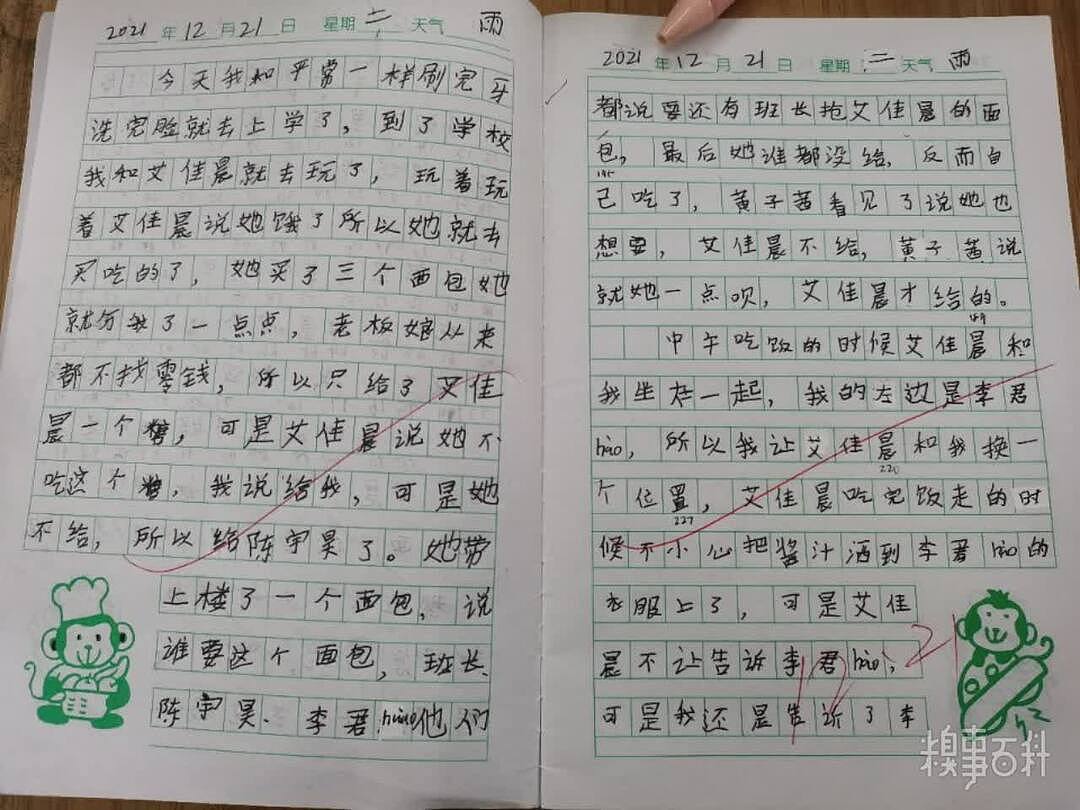 2021 年 12 月 21 日 星期 二 天气 雨
今天我和平常一样刷完牙
洗完脸就去上学了，到了学校
我和艾佳晨就去玩了，玩着玩
着艾佳晨说她饿了所以她就去
买吃的了，她买了三个面包她
就分我了一点点，老板娘从来
都不找零钱，所以只给了艾佳
晨一个糖，可是艾佳晨说她不
吃这个糖，我说给我，可是她
不给，所以给陈宇昊了。她带
上楼了一个面包，说
谁要这个面包，班长、
陈宇昊、李君hào他们
2021 年 12 月 21 日 星期 二 天气 雨
都说要还有班长抢艾佳晨的面
包，最后她谁都没给，反而自
195
己吃了，黄子茜看见了说她也
想要，艾佳晨不给，黄子茜说
就她一点呗，艾佳晨才给的。
中午吃饭的时候艾佳晨和
我坐在一起，我的左边是李君
hào，所以我让艾佳晨和我换一
220
个位置，艾佳晨吃完饭走的时
227
候不小心把酱汁洒到李君hào的
衣服上了，可是艾佳
晨不让告诉李君hào，
可是我还是告诉了李
12/21
糗事百科